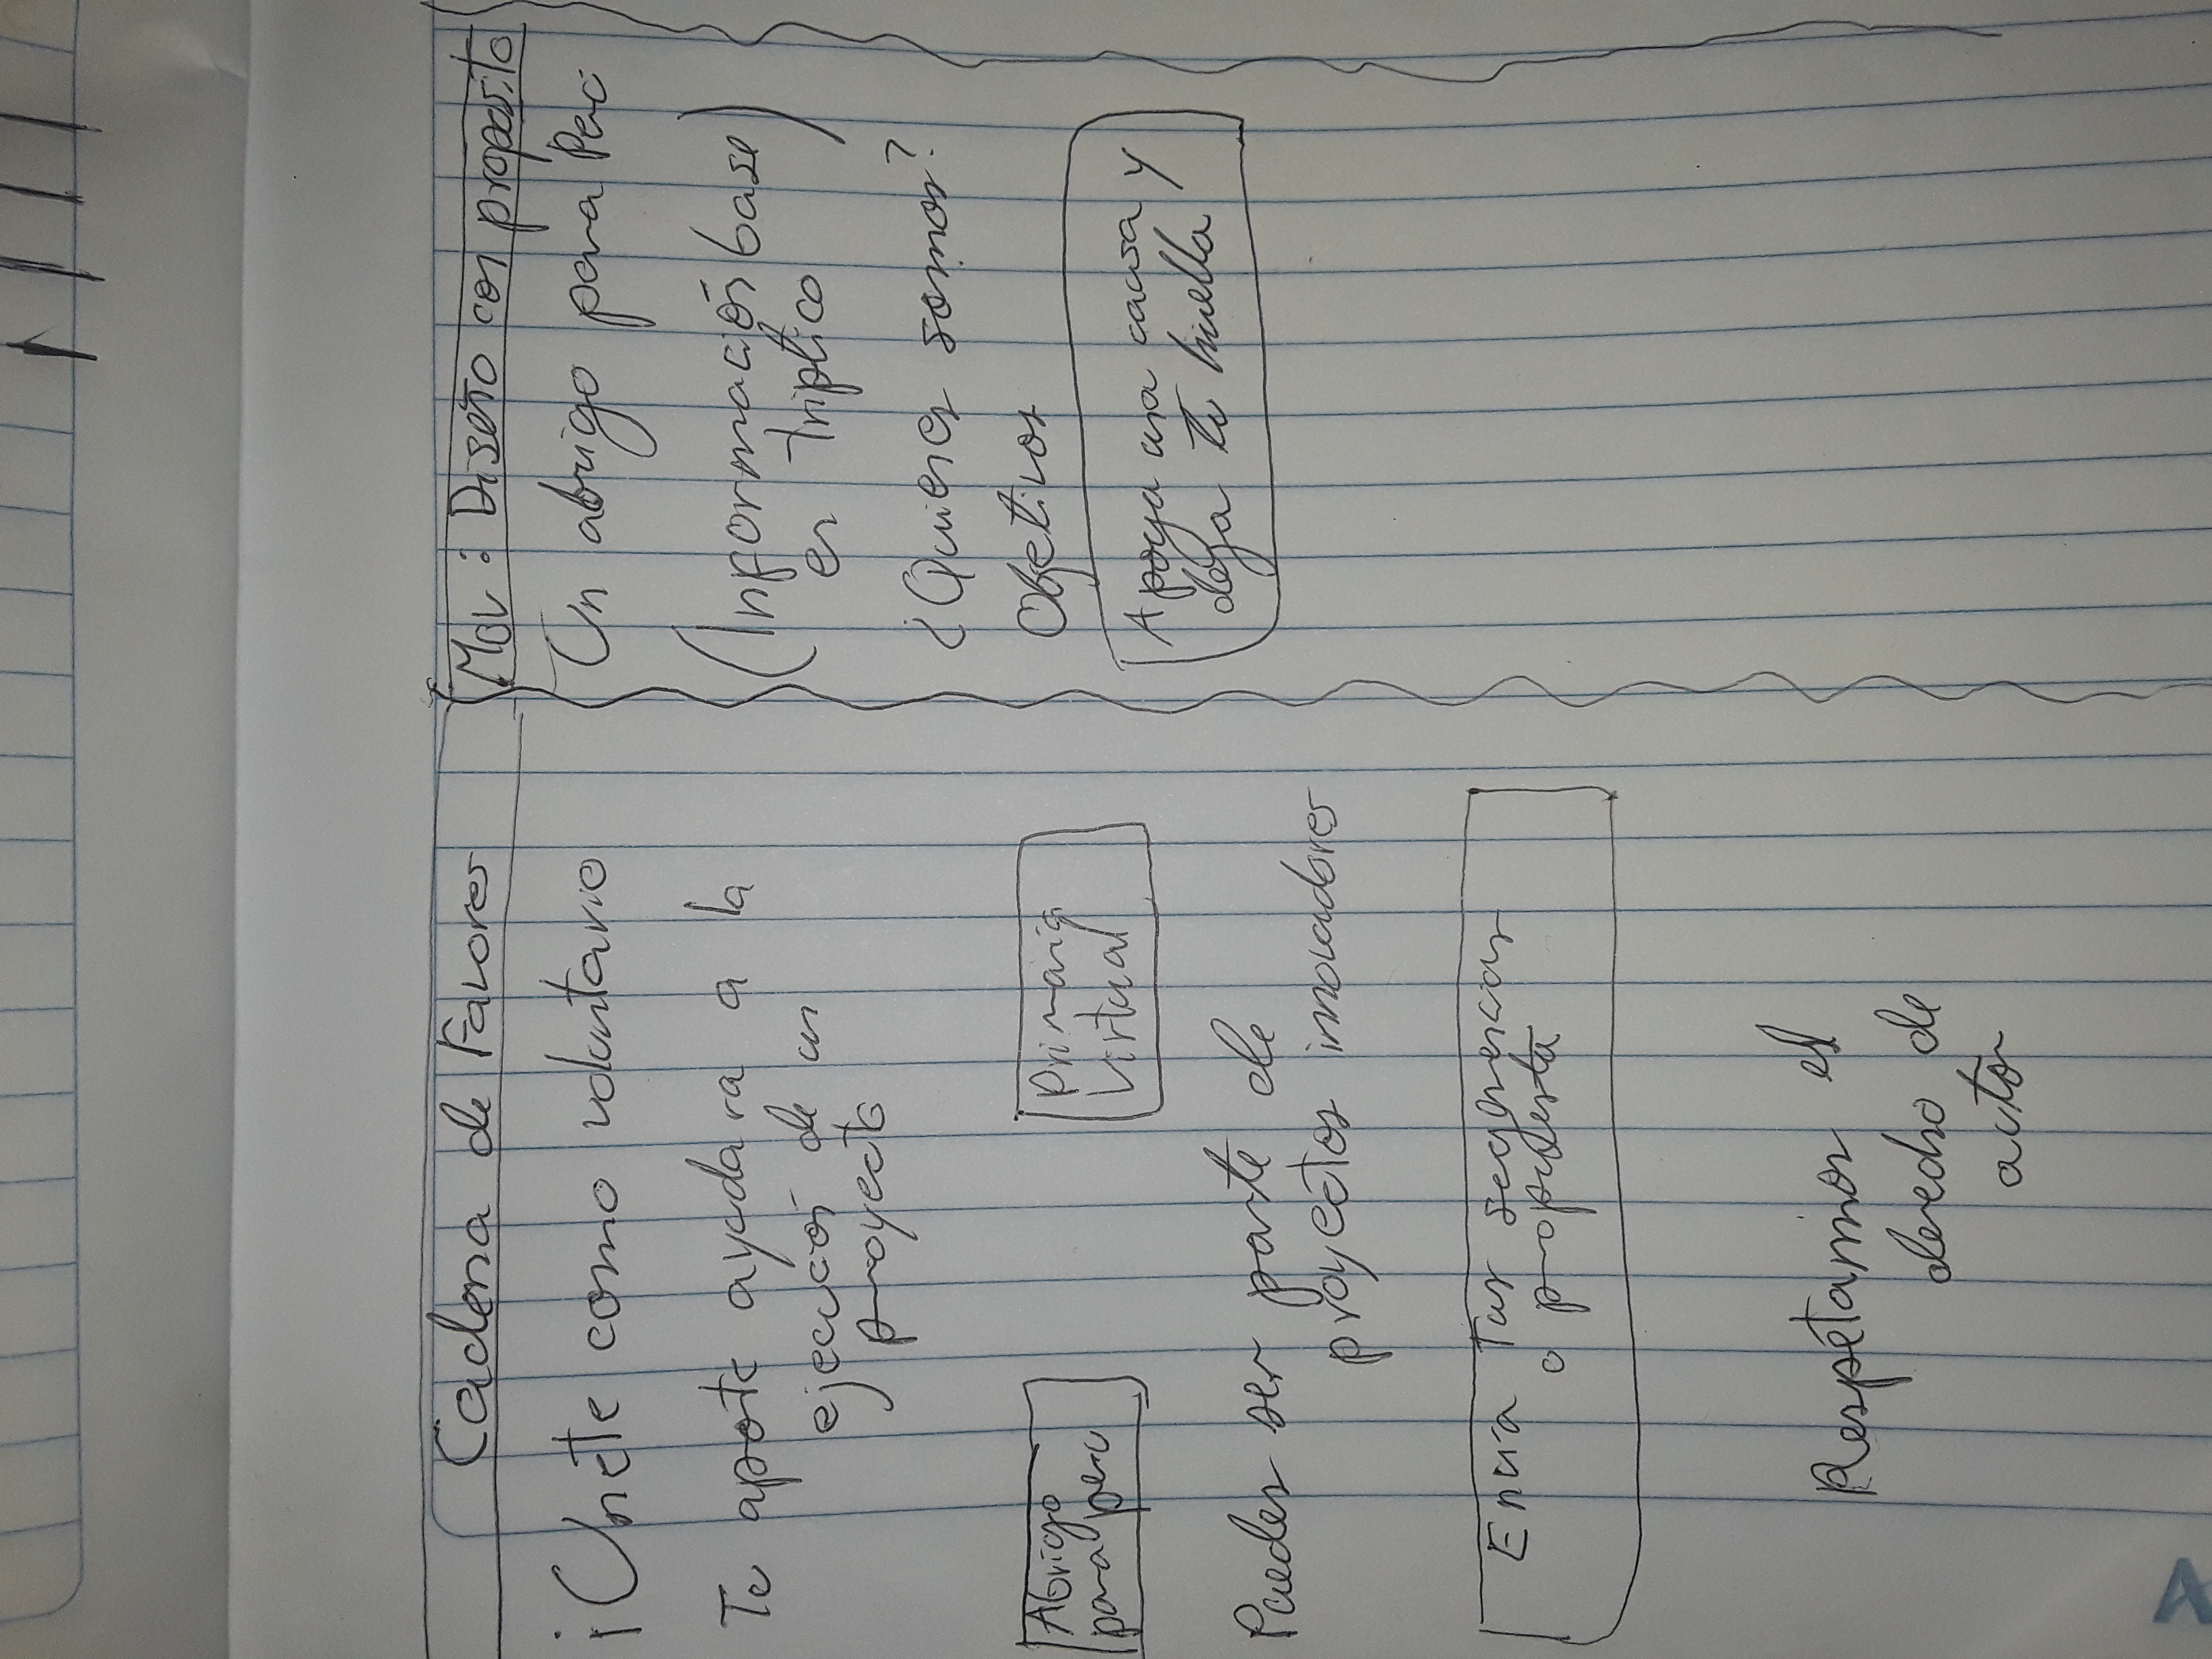 Cadena de Favores
¡Únete como voluntario
Tu aporte ayudara a la
ejecución de un
proyecto
Abrigo
para peru
Primaria
Virtual
Puedes ser parte de
proyectos innovadores
Envia tus sugerencias
o propuesta
Respetamos el
derecho de
autor
Mov: Diseño con proposito
Un abrigo para Perú
(Información base
en triptico)
¿Quienes somos?
Objetivos
Apoya una causa y
deja tu huella